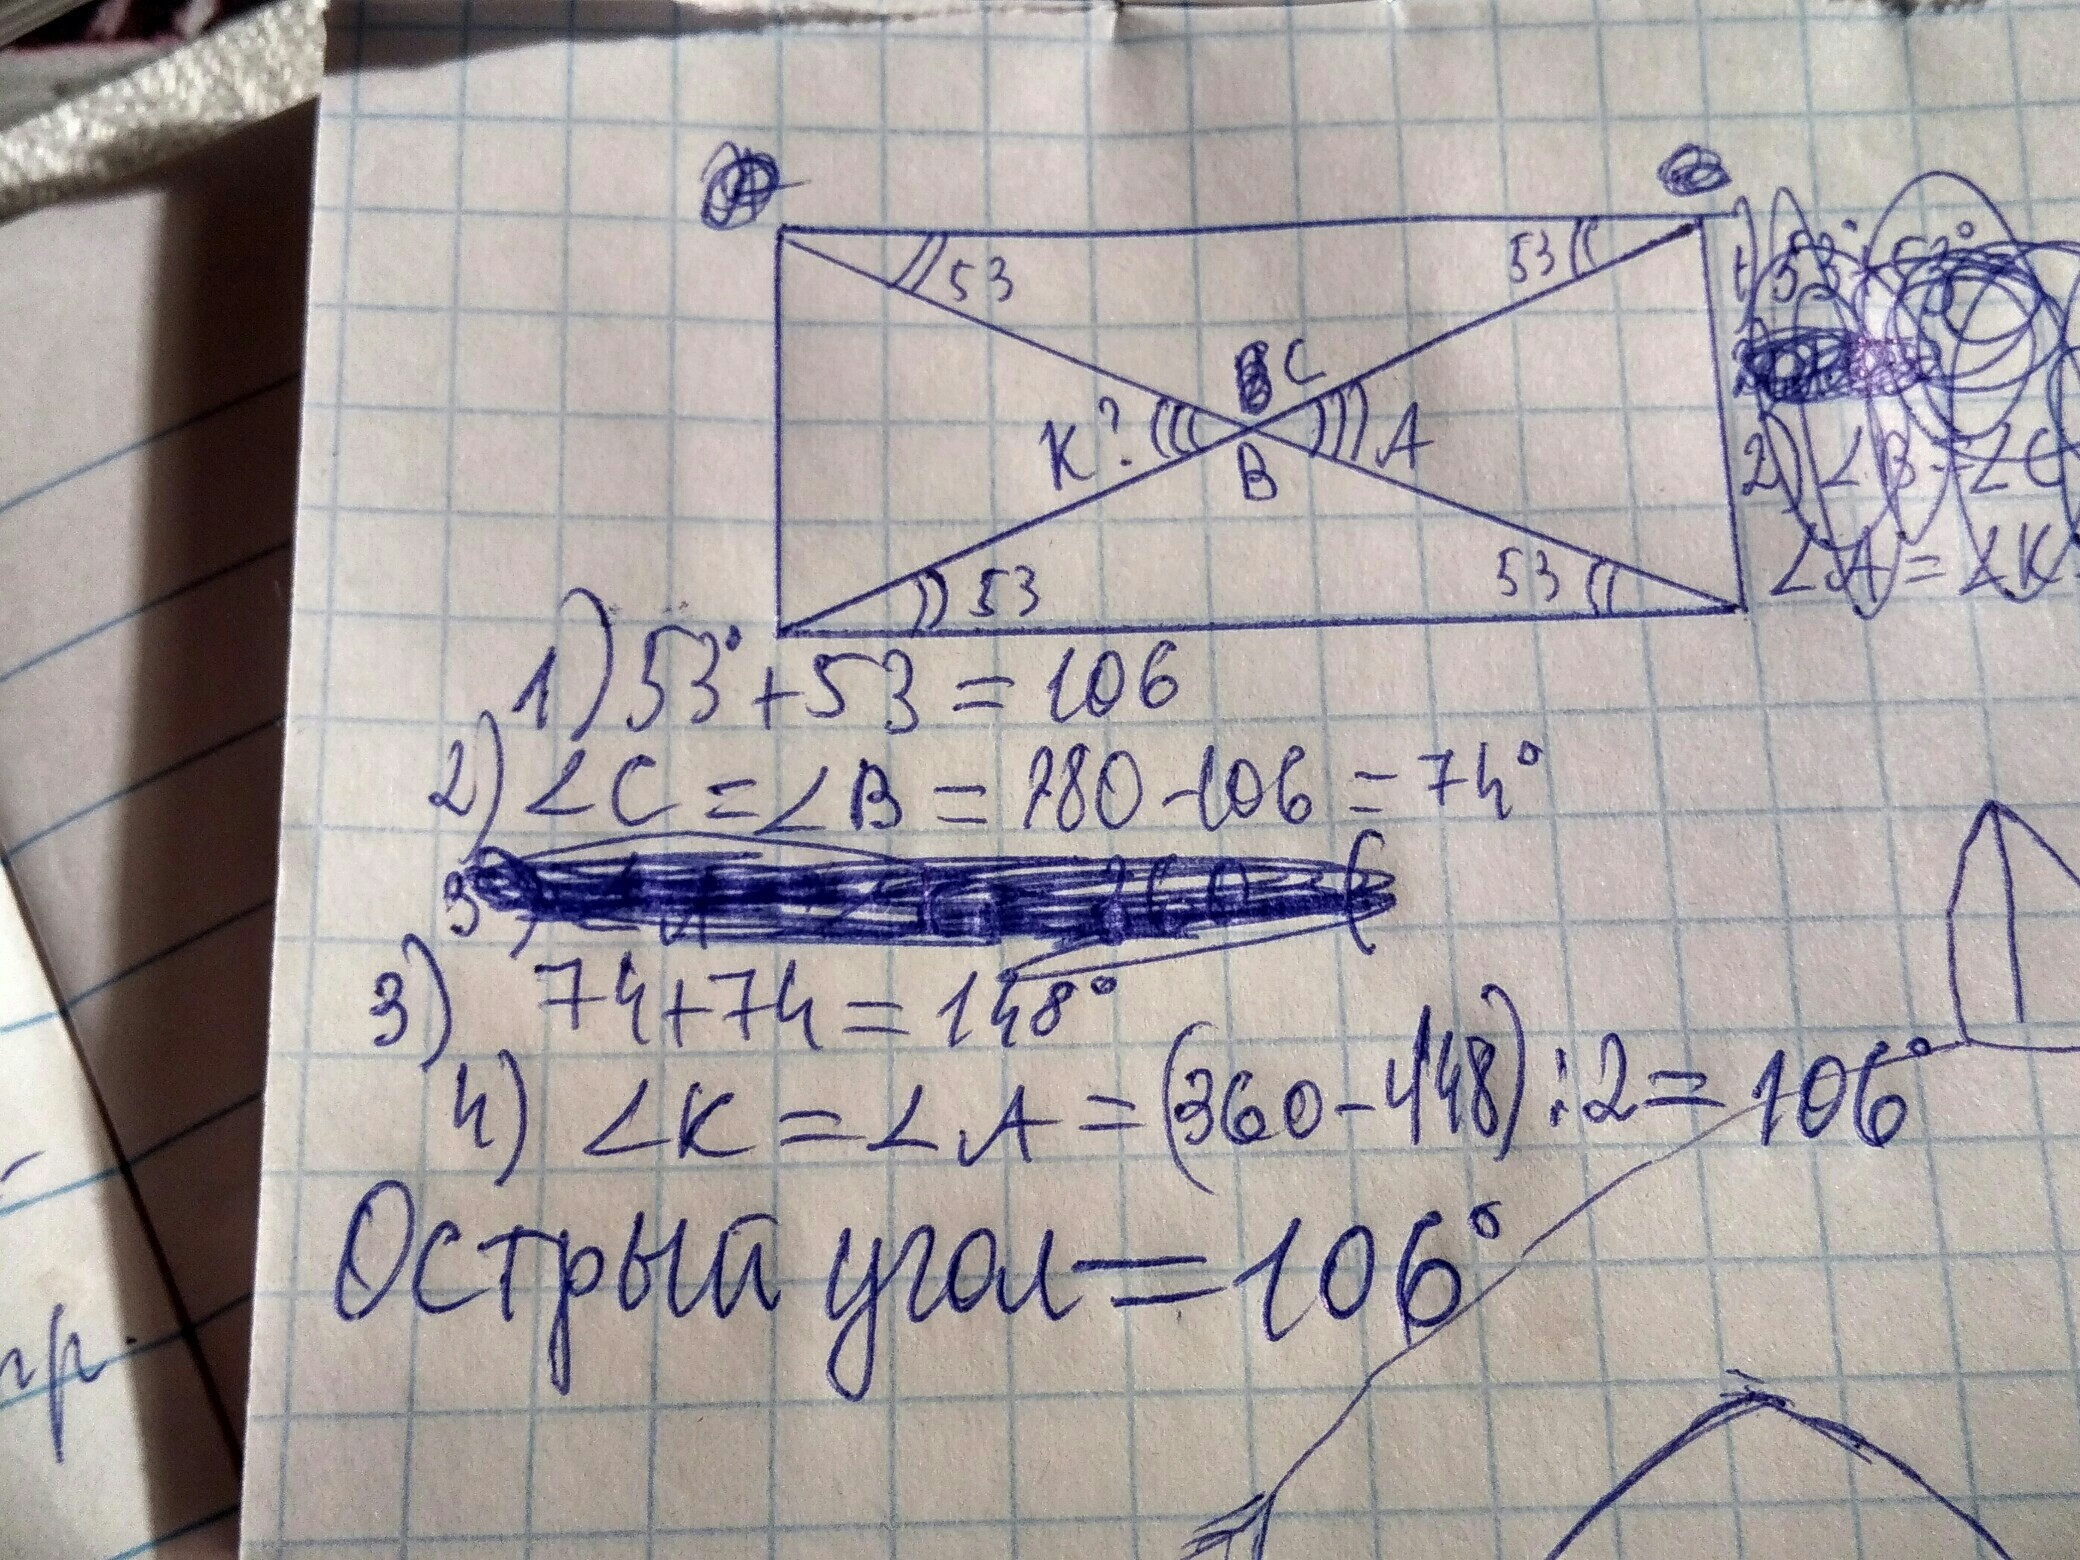 53 53
C
K? A
B
53 53
2) ∠B = ∠C
∠A = ∠K
1) 53° + 53 = 106
2) ∠C = ∠B = 180 - 106 = 74°
3) 74 + 74 = 148°
4) ∠K = ∠A = (360 - 148) : 2 = 106°
Острый угол = 106°
пр.